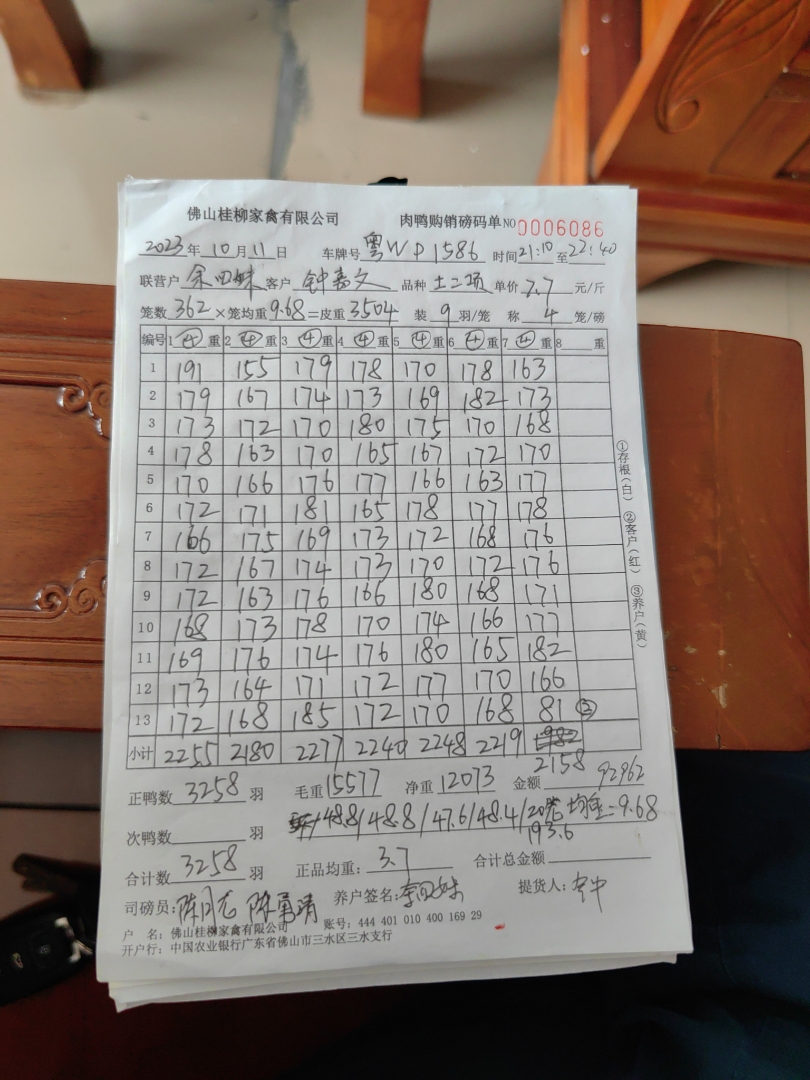 佛山桂柳家禽有限公司 肉鸭购销磅码单 NO 0006086
2023年 10月 11日 车牌号 粤WP1586 时间 21:10 至 22:40
联营户 余田妹 客户 钟嘉文 品种 土二项 单价 7.7 元/斤
笼数 362 ×笼均重 9.68 =皮重 3504 装 9 羽/笼 称 4 笼/磅
编号 1 ④ 重 2 ④ 重 3 ④ 重 4 ④ 重 5 ④ 重 6 ④ 重 7 ④ 重 8 重
1 191 155 179 178 170 178 163
2 179 167 174 173 169 182 173
3 173 172 170 180 175 170 168
4 178 163 170 165 167 172 170
5 170 166 176 177 166 163 177
6 172 171 181 165 178 177 178
7 166 175 169 173 172 168 176
8 172 167 174 173 170 172 176
9 172 163 176 166 180 168 171
10 168 173 178 170 174 166 177
11 169 176 174 176 180 165 182
12 173 164 171 172 177 170 166
13 172 168 185 172 170 168 81 ②
小计 2255 2180 2277 2240 2248 2219
2158
正鸭数 3258 羽 毛重 15577 净重 12073 金额 92962
次鸭数 羽 /48.8/48.8/47.6/48.4/20笼 均重=9.68
193.6
合计数 3258 羽 正品均重: 3.7 合计总金额
司磅员: 养户签名: 余田妹 提货人:
户 名: 佛山桂柳家禽有限公司 账号: 444 401 010 400 169 29
开户行: 中国农业银行广东省佛山市三水区三水支行
①存根(白) ②客户(红) ③养户(黄)